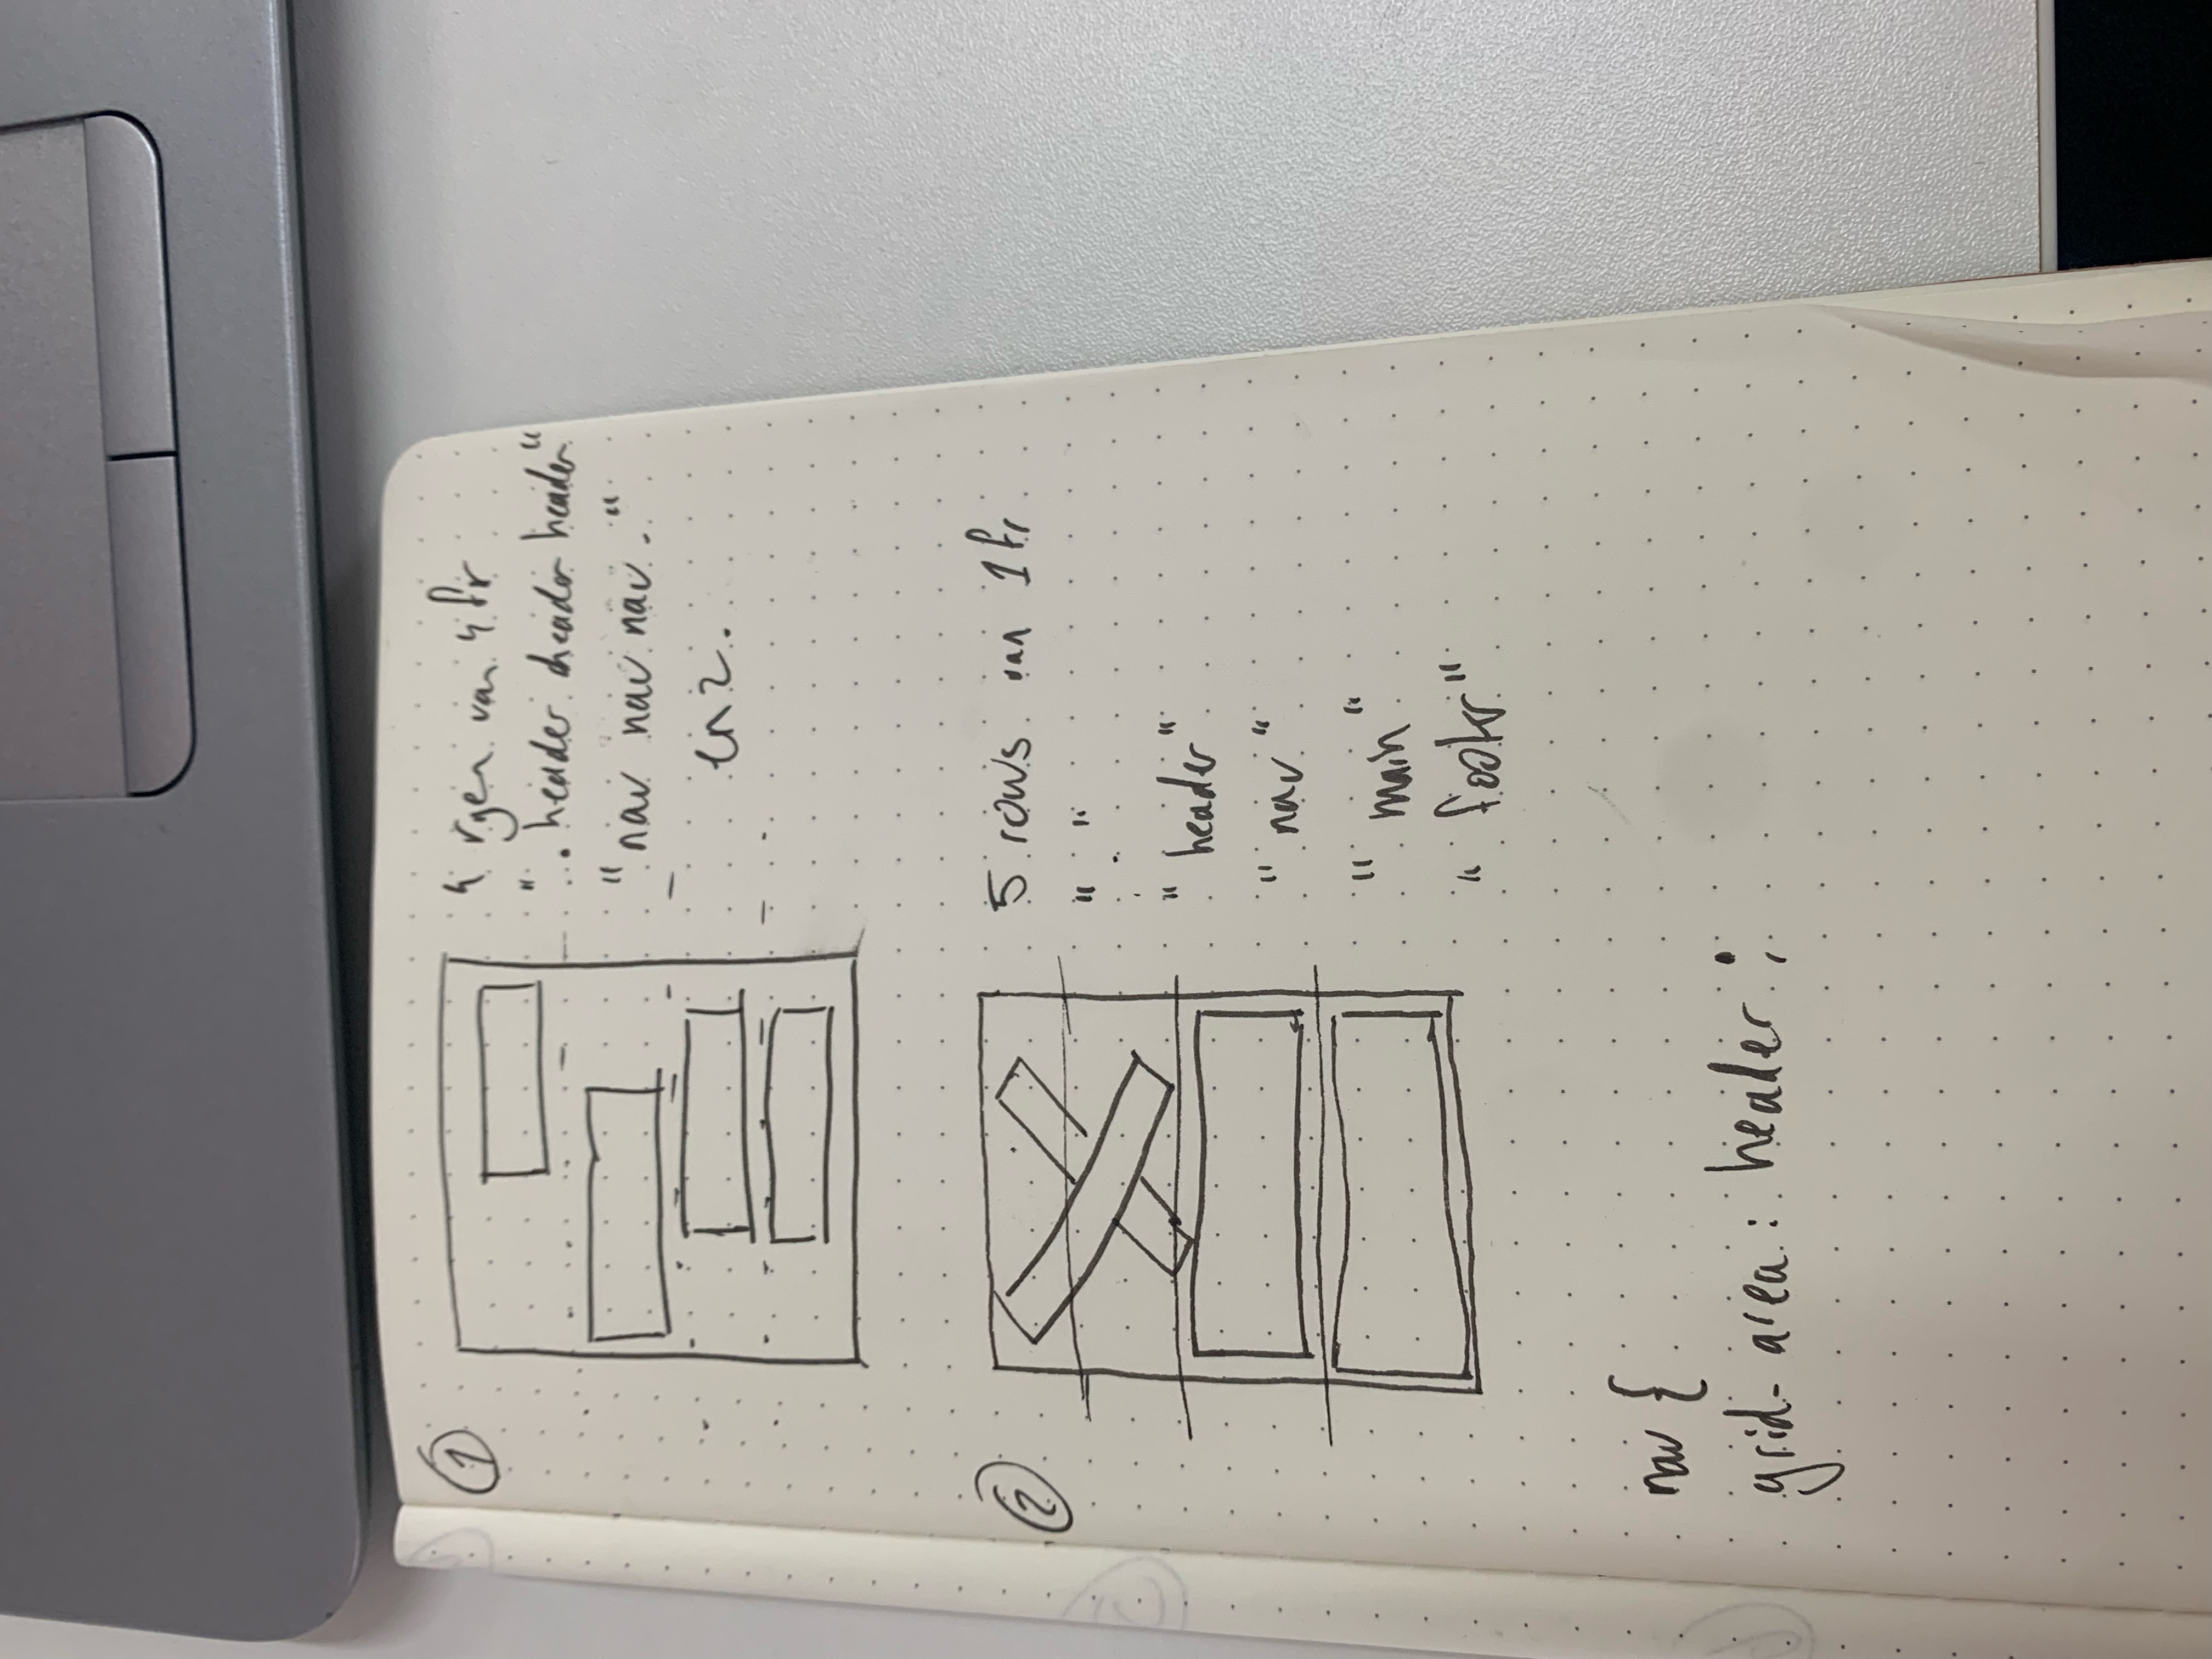 1
4 rgen van 4 fr
". header header header"
"nav nav nav ."
enz.
2
5 rows van 1 fr
" . "
" header "
" nav "
" main "
" footer "
nav {
grid-area : header ;